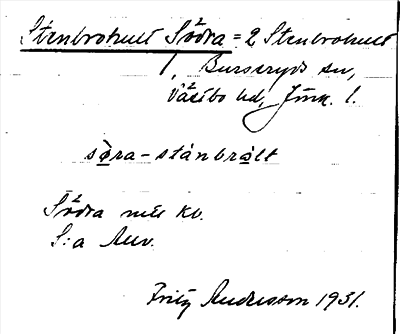 Stenbrohult Södra = 2 Stenbrohult
1, Burseryds sn,
Västbo hd, Jönk. l.
söra-stánbrålt
Södra mit kv.
S:a Anv.
Fritz Andersson 1931.